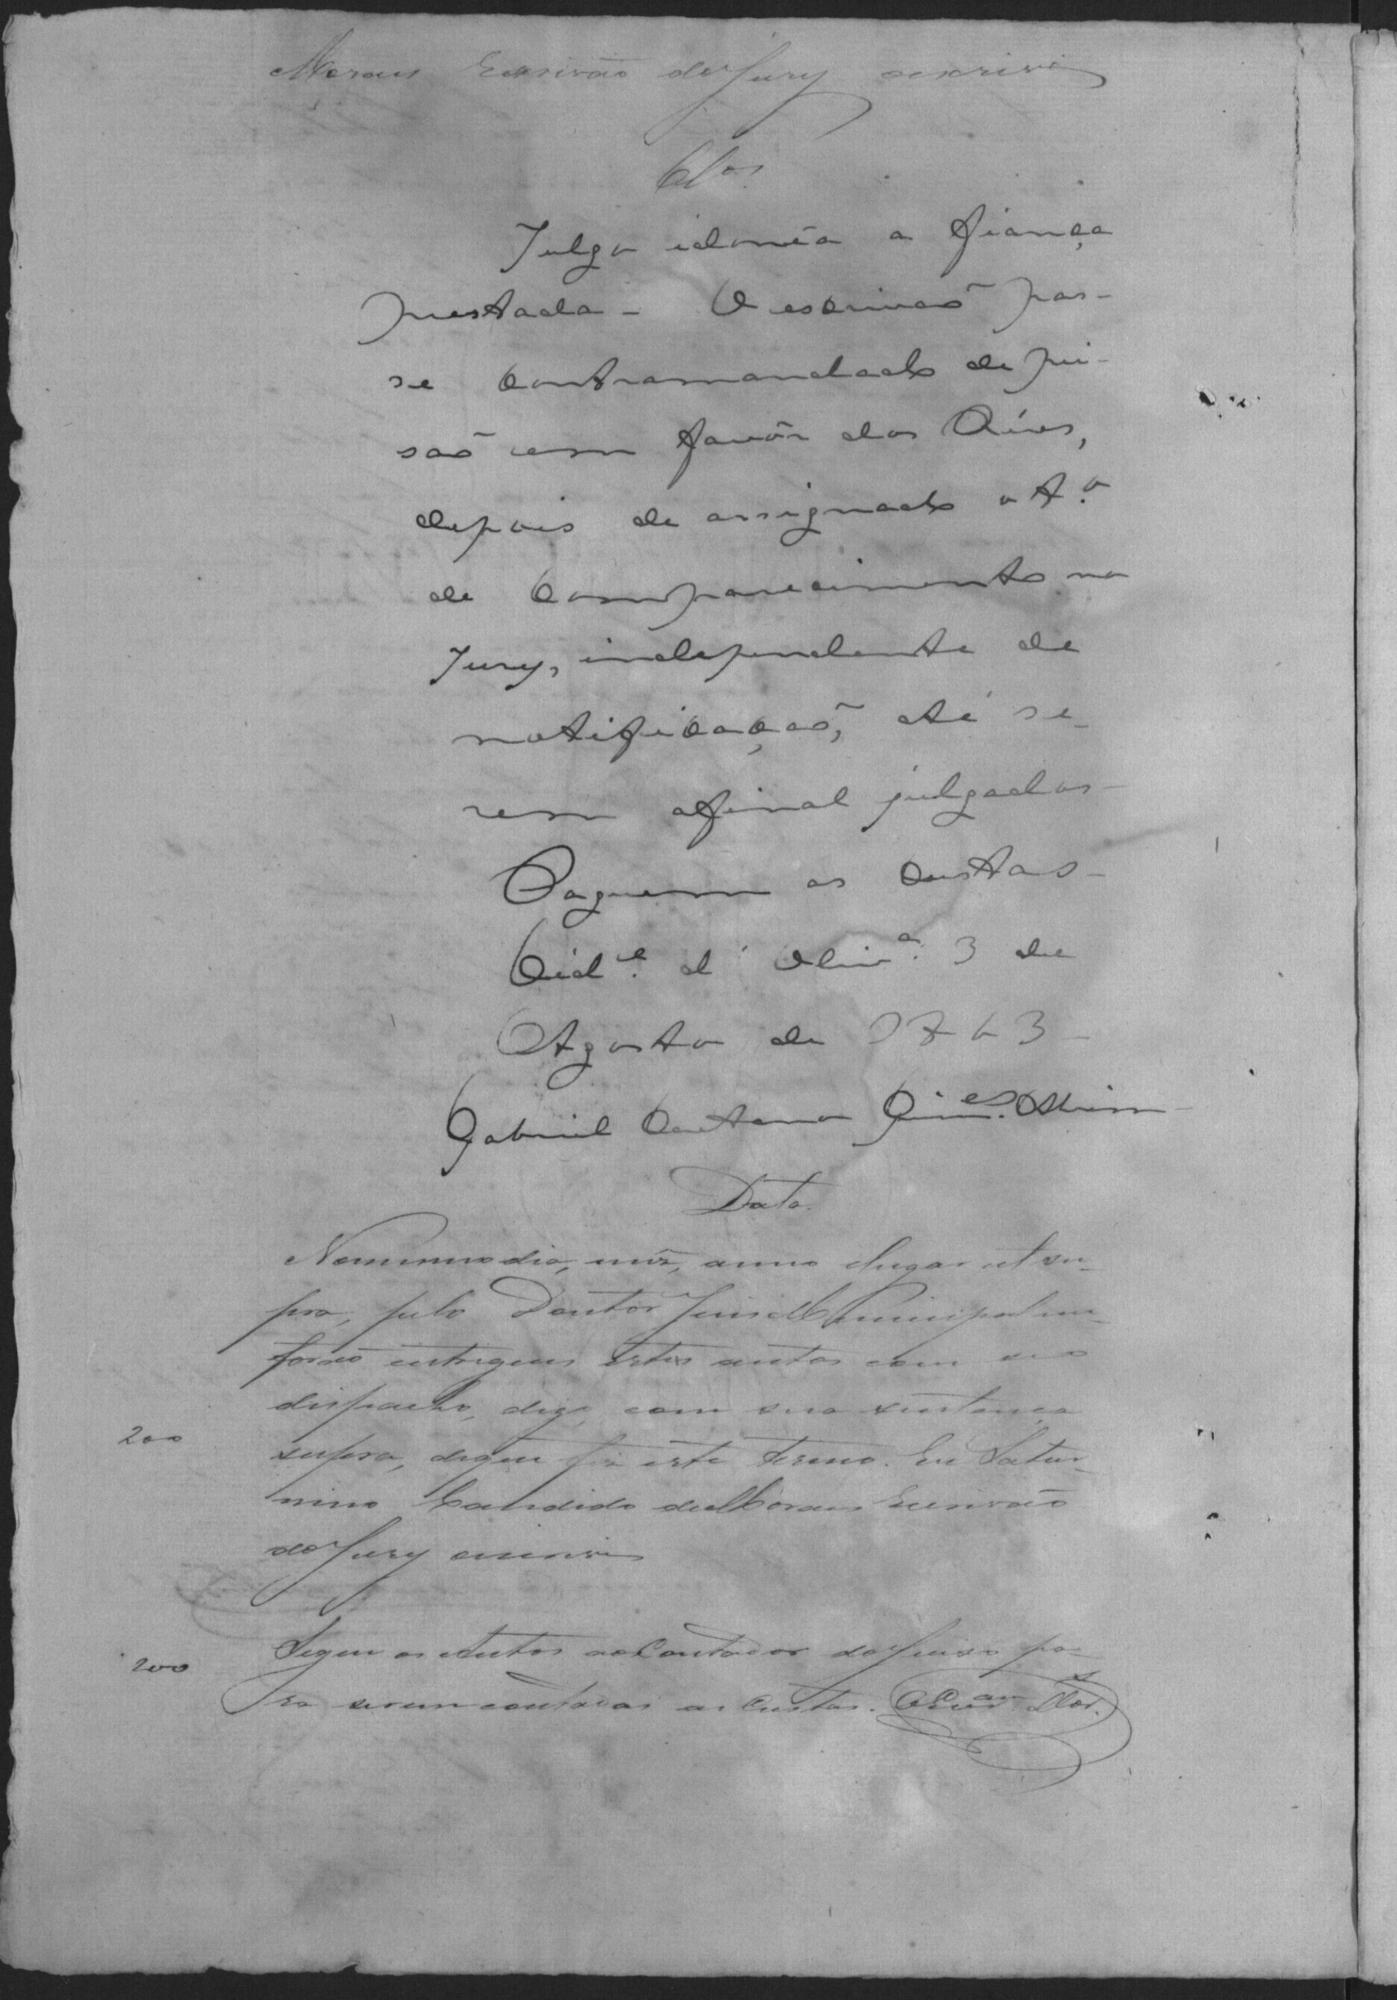 Moraes Escrivão do Jury escrivi
Clos.
Julgo idonêa a fiança
prestada – O escrivaõ pas-
se contramandado de pri-
saõ em favôr dos Réus,
depois de assignado o t.o
de comparecimento no
Jury, independente de
notificaçaõ, até se-
rem afinal julgados –
Paguem as custas –
Cid.e d' Oliv.a 3 de
Agosto de 1863 –
Gabriel Caetano
Data.
No mesmo dia, mez, anno e lugar ut su-
pra, pelo Doutor Juis Municipal me
forão entregues estes autos com seo
dispacho, digo, com sua sentença
200
supra, de que fiz este termo. Eu Satur-
nino Candido de Moraes Escrivão
do Jury escrivi
Segem os Autos ao Contador do Juiso pa-
200
ra serem contadas as Custas.